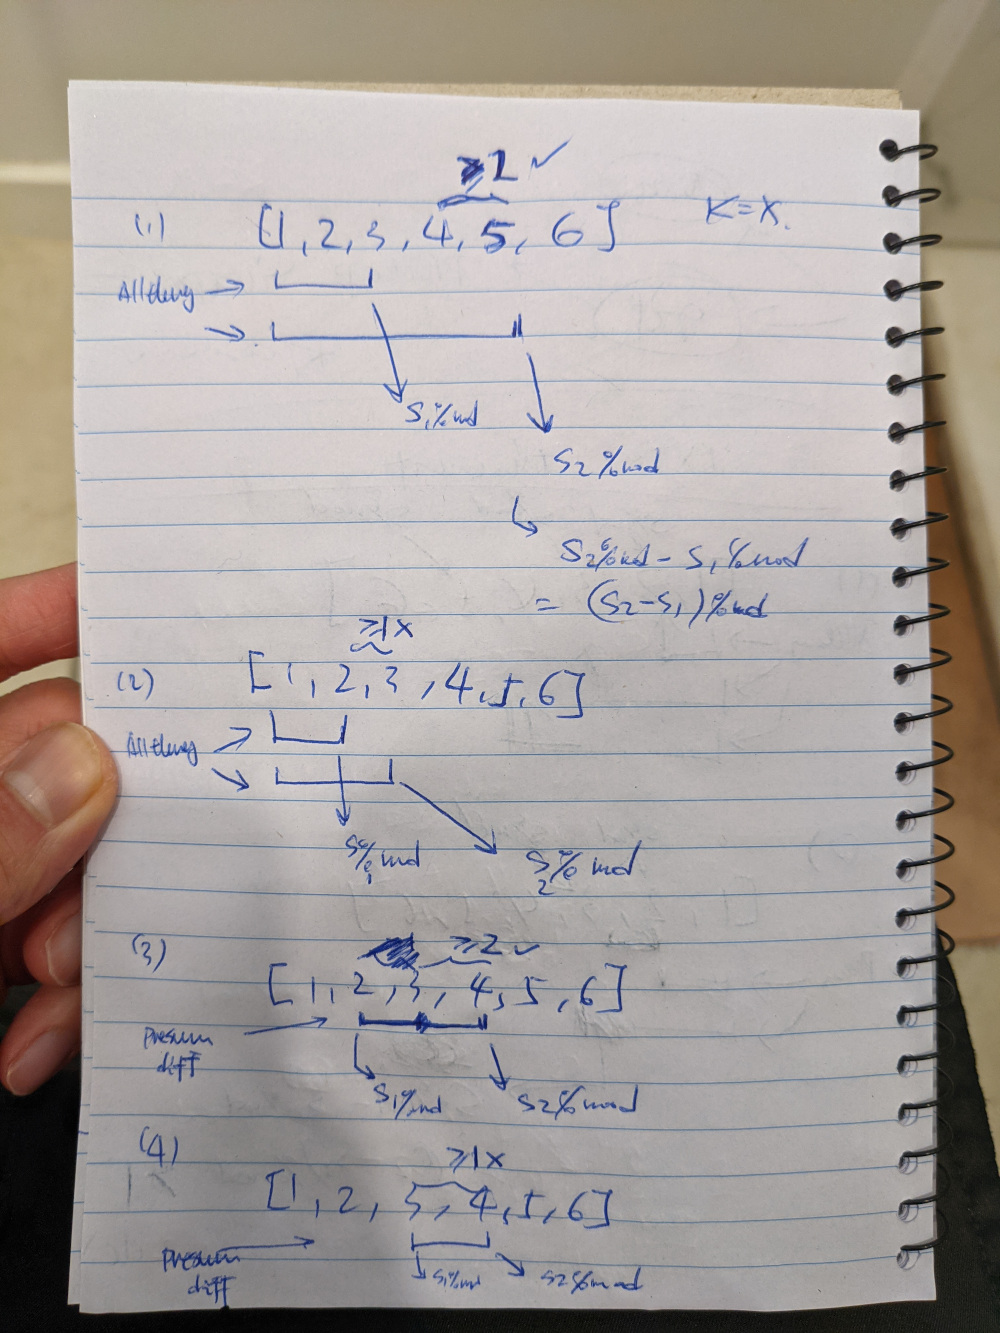 ≥2 ✓
(1) [1, 2, 3, 4, 5, 6] K=X.
→
→
S1%md
S2%mod
↳
S2%md - S1%mod
= (S2-S1)%md
≥1 x
(2) [1, 2, 3, 4, 5, 6]
S1%md
S2%md
(3) ≥2 ✓
[1, 2, 3, 4, 5, 6]
Presum
diff
S1%md S2%mod
(4)
≥1 x
[1, 2, 3, 4, 5, 6]
Presum
diff
S1%md S2%mod